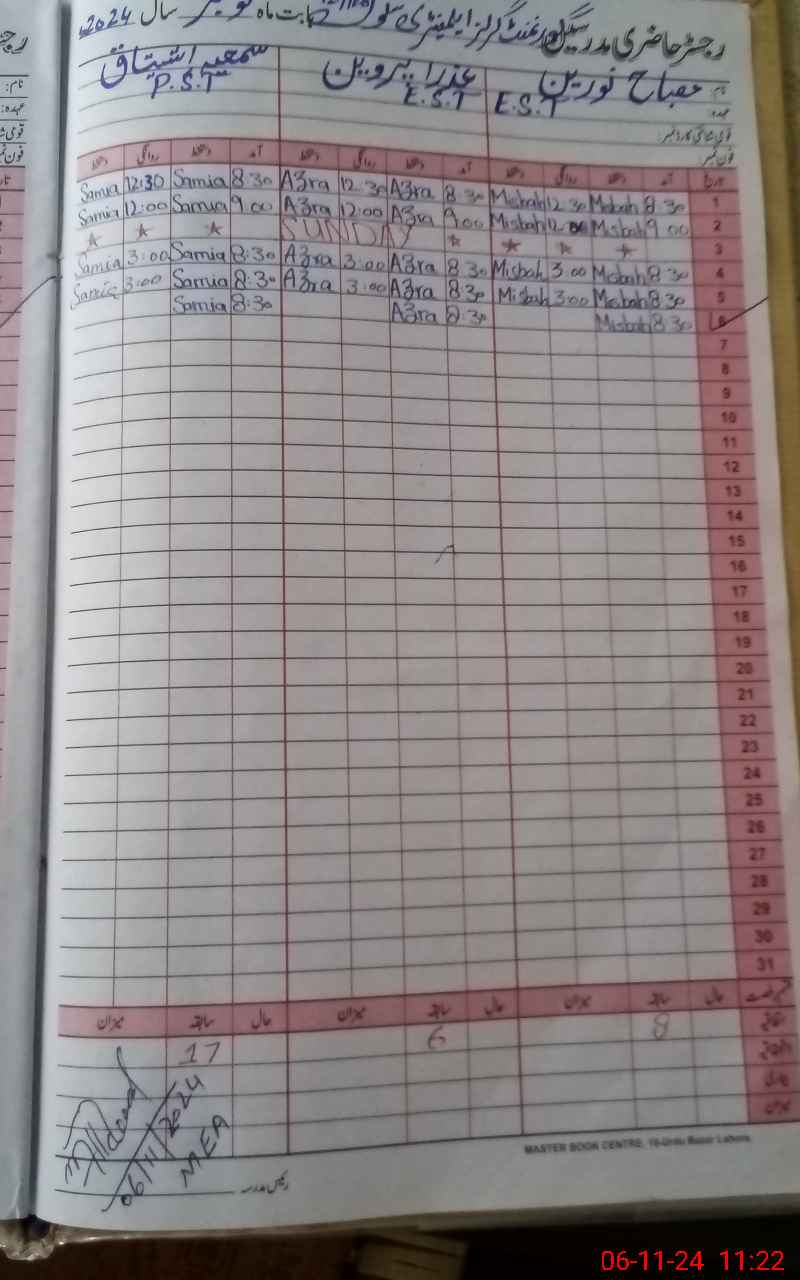 رجسٹر حاضری مدرسین گورنمنٹ گرلز ایلیمنٹری سکول بابت ماہ نومبر سال 2024ء
نام: مصباح نورین عذرا پروین سمعیہ اشتیاق
عہدہ: E.S.T E.S.T P.S.T
قومی شناختی کارڈ نمبر:
فون نمبر:
تاریخ آمد دستخط روانگی دستخط آمد دستخط روانگی دستخط آمد دستخط روانگی دستخط
Samia 12:30 Samia 8:30 Azra 12:30 Azra 8:30 Misbah 12:30 Misbah 8:30 1
Samia 12:00 Samia 9:00 Azra 12:00 Azra 9:00 Misbah 12:00 Misbah 9:00 2
★ ★ ★ SUNDAY ★ ★ ★ ★ 3
Samia 3:00 Samia 8:30 Azra 3:00 Azra 8:30 Misbah 3:00 Misbah 8:30 4
Samia 3:00 Samia 8:30 Azra 3:00 Azra 8:30 Misbah 3:00 Misbah 8:30 5
Samia 8:30 Azra 8:30 Misbah 8:30 6
7
8
9
10
11
12
13
14
15
16
17
18
19
20
21
22
23
24
25
26
27
28
29
30
31
حال سابقہ میزان حال سابقہ میزان حال سابقہ میزان
17 6 8
میزان
06/11/2024
MEA
رئیس مدرسہ
MASTER BOOK CENTRE, 10-Urdu Bazar Lahore.
06-11-24 11:22